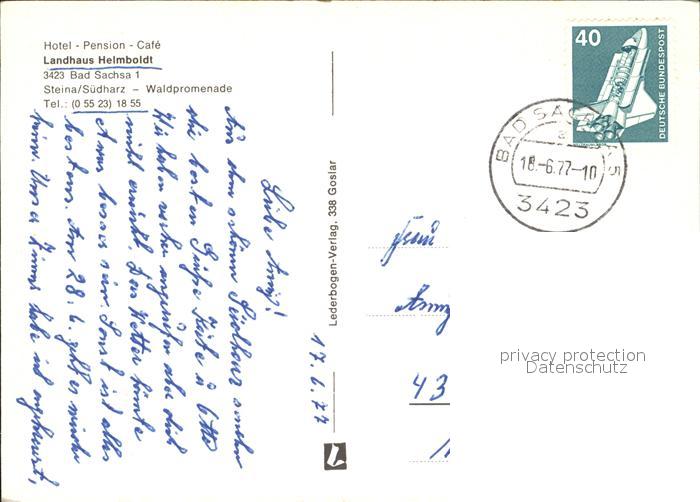 Hotel - Pension - Café
Landhaus Helmboldt
3423 Bad Sachsa 1
Steina/Südharz - Waldpromenade
Tel.: (0 55 23) 18 55
40
DEUTSCHE BUNDESPOST
BAD SACHSA
18.-6.77-10
3423
17.6.77
Liebe Anny!
Aus dem schönen Südharz senden
die besten Grüße Käte u. Otto
Wir haben vorher angerufen aber dich
nicht erreicht. Das Wetter könnte
etwas besser sein. Sonst ist alles
bestens. Am 28.6. geht es wieder
heim. Unser Zimmer habe ich angekreuzt,
Lederbogen-Verlag, 338 Goslar
Frau
Anny
43
privacy protection
Datenschutz